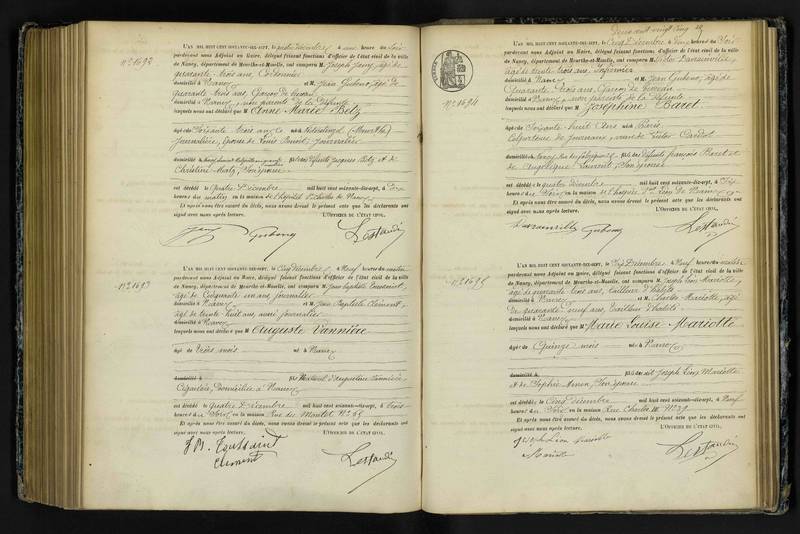 N° 1692
L'AN MIL HUIT CENT SOIXANTE-DIX-SEPT, le quatre Décembre à une heure du Soir
pardevant nous Adjoint au Maire, délégué faisant fonctions d'officier de l'état civil de la ville
de Nancy, département de Meurthe-et-Moselle, ont comparu M. Joseph âgé de
quarante trois ans, Cordonnier
domicilié à Nancy et M. Jean âgé de
quarante trois ans, Garçon de bureau
domicilié à Nancy, non parents de la défunte
lesquels nous ont déclaré que M Anne Marie Betz
âgée de Soixante trois ans née à (Meurthe)
Journalière, épouse de Louis Benoit, Journalier
domiciliée à fille des défunts Jacques Betz et de
Christine son épouse
est décédée le Quatre Décembre mil huit cent soixante-dix-sept, à
heures du matin en la maison de l'hôpital St Charles de Nancy
Et après nous être assuré du décès, nous avons dressé le présent acte que les déclarants ont
signé avec nous après lecture. L'OFFICIER DE L'ÉTAT CIVIL,
N° 1693
L'AN MIL HUIT CENT SOIXANTE-DIX-SEPT, le Cinq Décembre à Neuf heures du matin
pardevant nous Adjoint au Maire, délégué faisant fonctions d'officier de l'état civil de la ville
de Nancy, département de Meurthe-et-Moselle, ont comparu M. Jean Baptiste Toussaint,
âgé de Cinquante un ans, journalier
domicilié à Nancy et M. Jean Baptiste Clément,
âgé de trente huit ans, aussi journalier
domicilié à Nancy
lesquels nous ont déclaré que M Auguste Vannière
âgé de trois mois né à Nancy
domicilié à fils naturel d'Augustine Vannière,
Cigarière, Domiciliée à Nancy
est décédé le Quatre Décembre mil huit cent soixante-dix-sept, à trois
heures du Soir en la maison Rue du Montet N° 65
Et après nous être assuré du décès, nous avons dressé le présent acte que les déclarants ont
signé avec nous après lecture. L'OFFICIER DE L'ÉTAT CIVIL,
J B. Toussaint
Clement
N° 1694
L'AN MIL HUIT CENT SOIXANTE-DIX-SEPT, le Cinq Décembre à une heures du Soir
pardevant nous Adjoint au Maire, délégué faisant fonctions d'officier de l'état civil de la ville
de Nancy, département de Meurthe-et-Moselle, ont comparu M. Victor
âgé de trente trois ans, Infirmier
domicilié à Nancy et M. Jean âgé de
Quarante trois ans, Garçon de bureau
domicilié à Nancy, non parents de la défunte
lesquels nous ont déclaré que M Joséphine Baret
âgée de Soixante huit ans née à Paris
Colporteuse de Journaux, veuve de Victor
domiciliée à Nancy fille des défunts François Baret et
de Angélique Laurent, son épouse
est décédée le quatre Décembre mil huit cent soixante-dix-sept, à Six
heures du Soir en la maison de l'hospice St de Nancy
Et après nous être assuré du décès, nous avons dressé le présent acte que les déclarants ont
signé avec nous après lecture. L'OFFICIER DE L'ÉTAT CIVIL,
N° 1695
L'AN MIL HUIT CENT SOIXANTE-DIX-SEPT, le Six Décembre à Neuf heures du matin
pardevant nous Adjoint au Maire, délégué faisant fonctions d'officier de l'état civil de la ville
de Nancy, département de Meurthe-et-Moselle, ont comparu M. Joseph Léon Mariotte,
âgé de quarante trois ans, tailleur d'habits
domicilié à Nancy et M. Charles Mariotte, âgé
de quarante neuf ans, tailleur d'habits
domicilié à Nancy
lesquels nous ont déclaré que M Marie Louise Mariotte
âgée de Quinze mois née à Nancy
domiciliée à fille dudit Joseph Léon Mariotte
et de Sophie son épouse
est décédée le Cinq Décembre mil huit cent soixante-dix-sept, à Neuf
heures du Soir en la maison Rue Charles III N° 29
Et après nous être assuré du décès, nous avons dressé le présent acte que les déclarants ont
signé avec nous après lecture. L'OFFICIER DE L'ÉTAT CIVIL,
Joseph Léon Mariotte
Mariotte